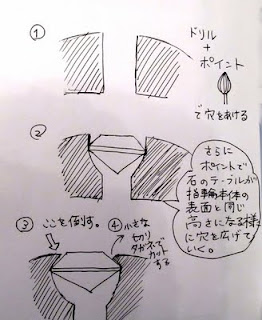 ①
ドリル
+
ポイント
で穴をあける
②
さらに
ポイントで
石のテーブルが
指輪本体の
表面と同じ
高さになる様
に穴を広げて
いく。
③ ここを倒す。
④ 小さな
切り
タガネで
カット
する